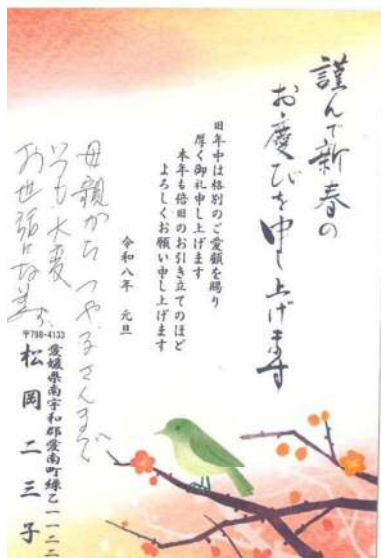 謹んで新春の
お慶びを申し上げます
旧年中は格別のご愛顧を賜り
厚く御礼申し上げます
本年も倍旧のお引き立てのほど
よろしくお願い申し上げます
令和八年 元旦
母親から つや子さんまで
いつも大変
お世話になります
〒798-4133
愛媛県南宇和郡愛南町緑乙一一二二
松岡二三子